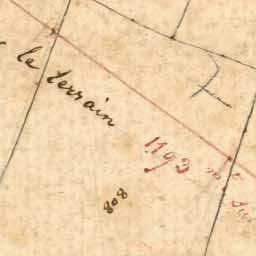 le terrain
1193 m
808